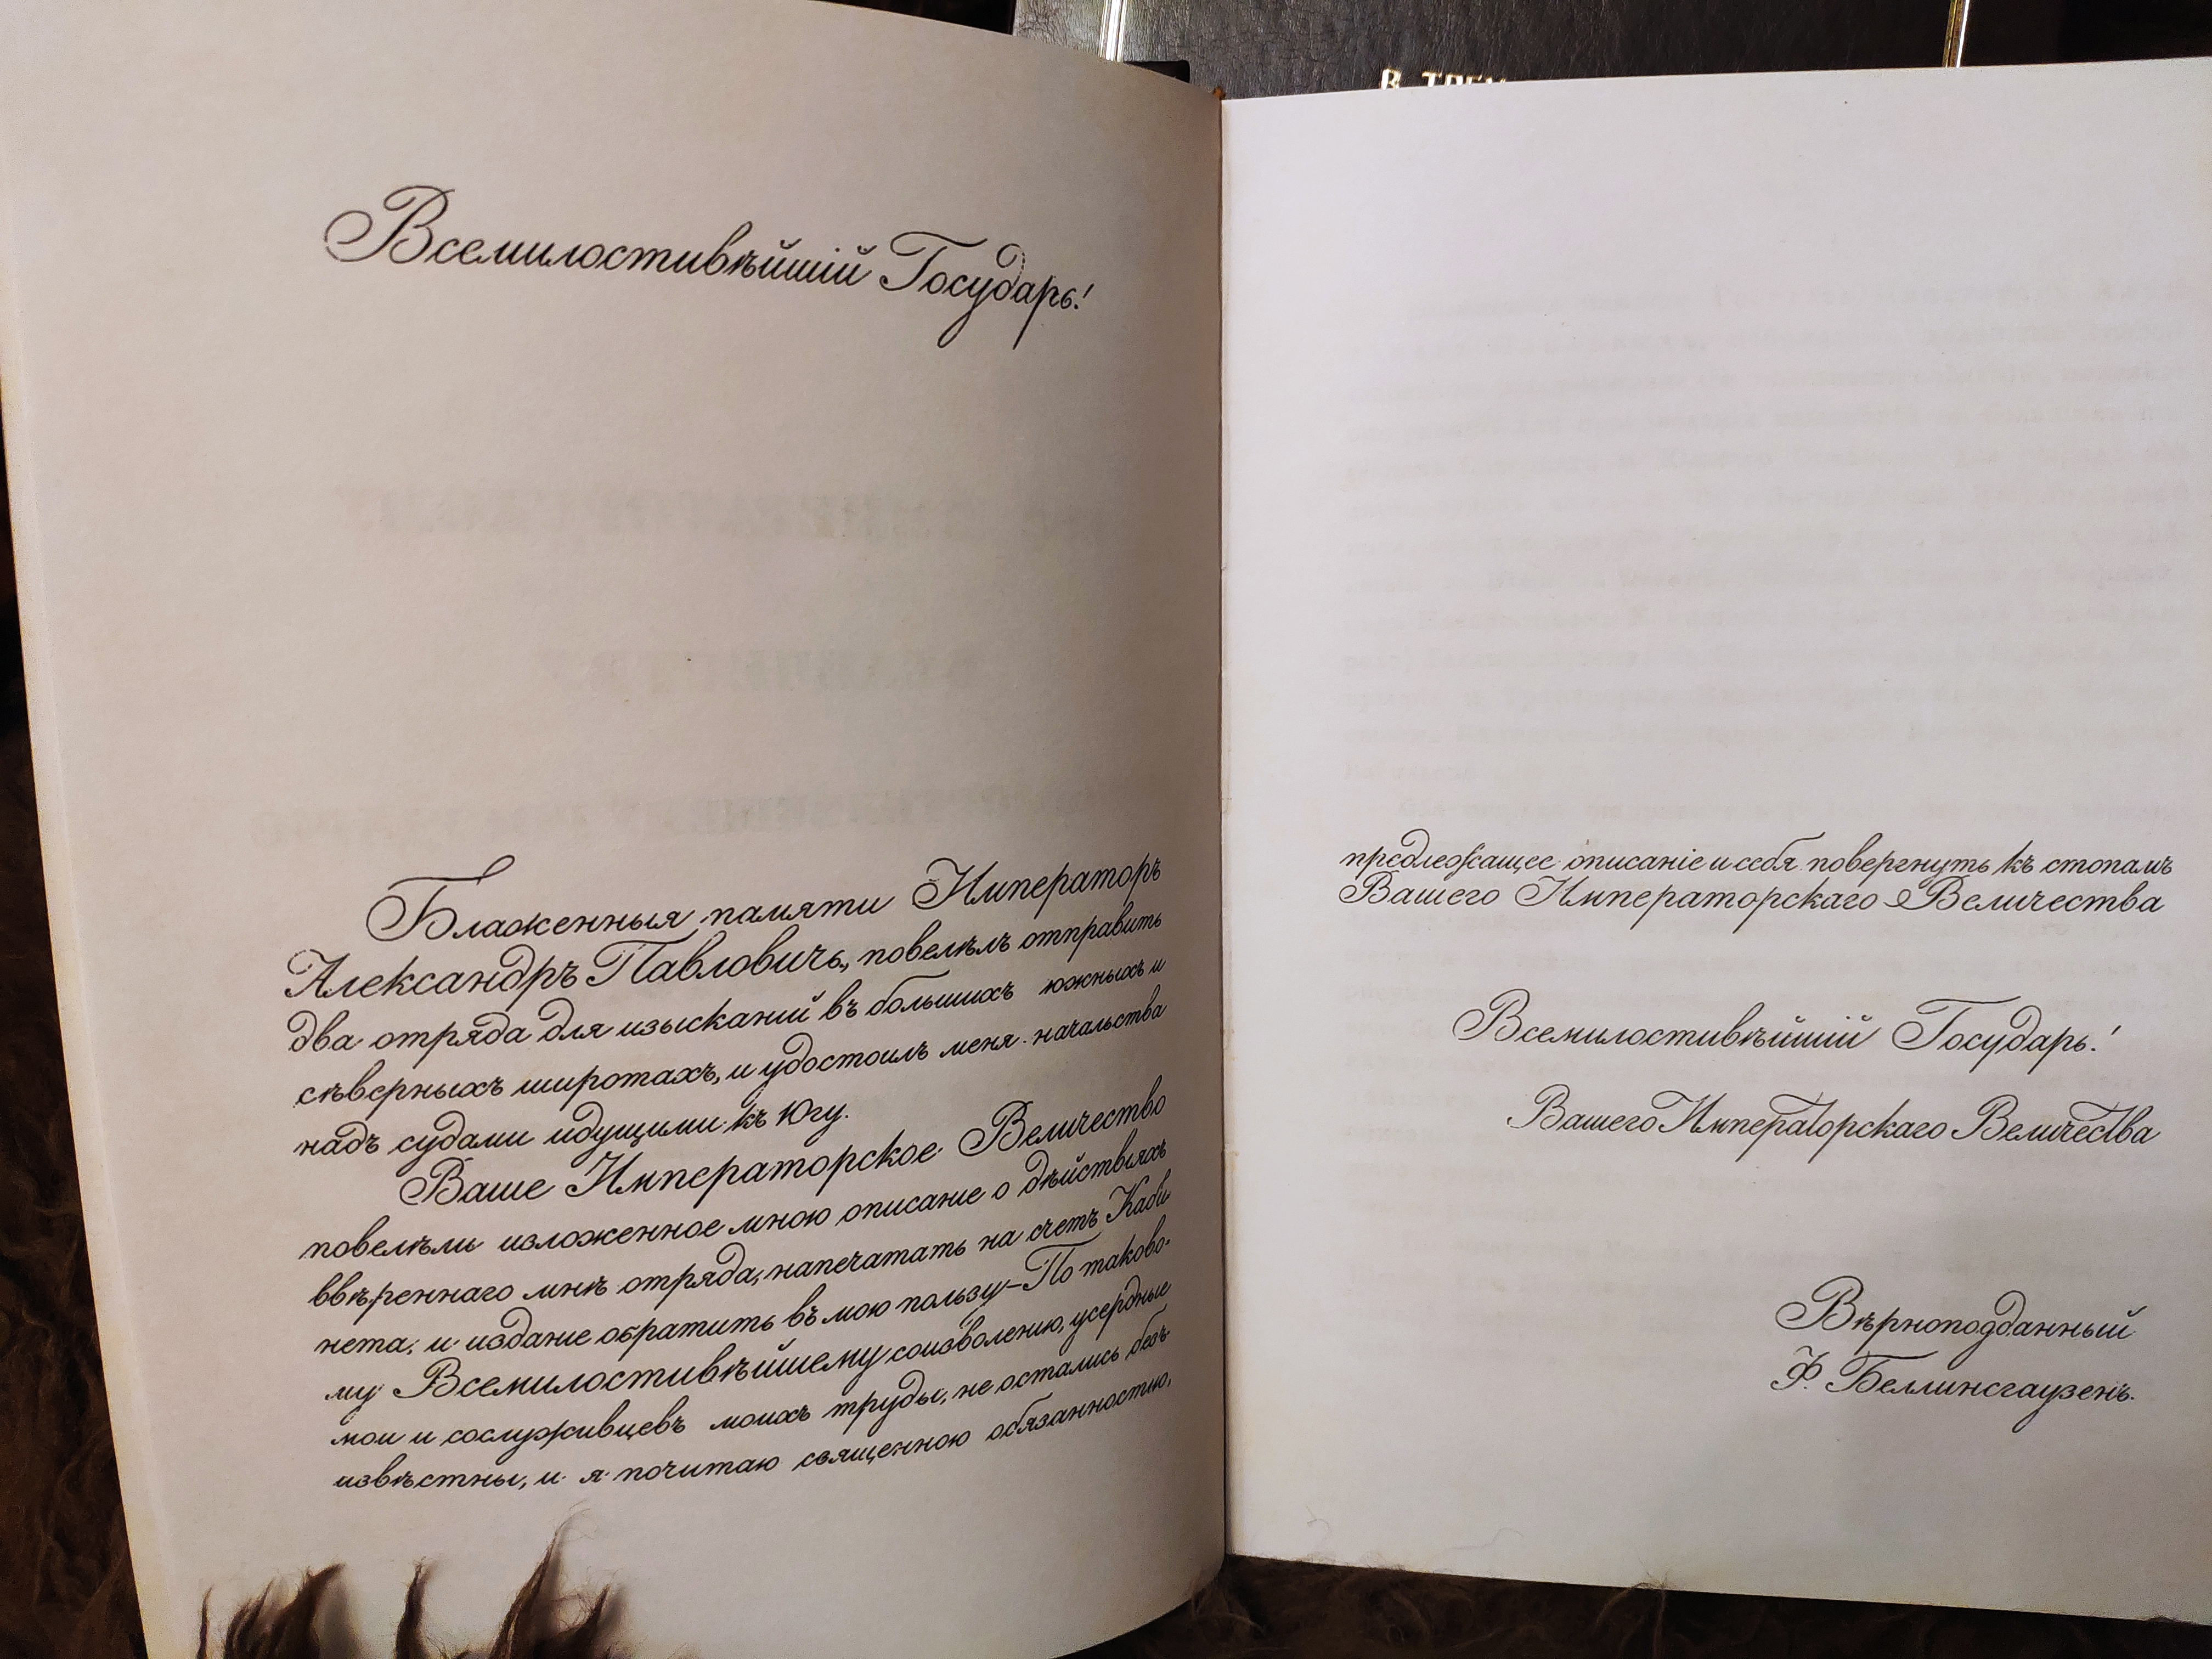 В ТРЕМ
Всемилостивѣйшій Государь!
Блаженныя памяти Императоръ
Александръ Павловичь, повелѣлъ отправить
два отряда для изысканій въ большихъ южныхъ и
сѣверныхъ широтахъ, и удостоилъ меня начальства
надъ судами идущими къ Югу.
Ваше Императорское Величество
повелѣли изложенное мною описание о дѣйствіяхъ
ввѣреннаго мнѣ отряда, напечатать на счетъ Каби
нета, и издание обратить въ мою пользу–По таково-
му Всемилостивѣйшему соизволению, усердные
мои и сослуживцевъ моихъ труды, не остались безъ
извѣстны, и я почитаю священною обязанностию,
предлежащее описаніе и себя повергнуть къ стопамъ
Вашего Императорскаго Величества
Всемилостивѣйшій Государь!
Вашего Императорскаго Величества
Вѣрноподданный
Ф. Беллинсгаузенъ.